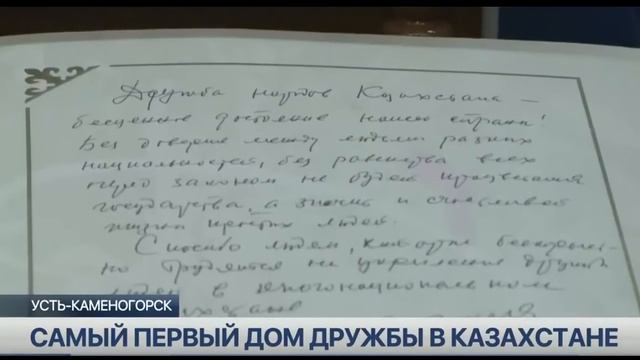 Дружба народов Казахстана –
бесценное достояние нашей страны!
Без доверия между людьми разных
национальностей, без равенства всех
перед законом не будет процветания
государства, а значит и счастливой
жизни людей.
Спасибо людям, которые бескорыст-
но трудятся на укрепление дружбы
людей в многонациональном
УСТЬ-КАМЕНОГОРСК
САМЫЙ ПЕРВЫЙ ДОМ ДРУЖБЫ В КАЗАХСТАНЕ